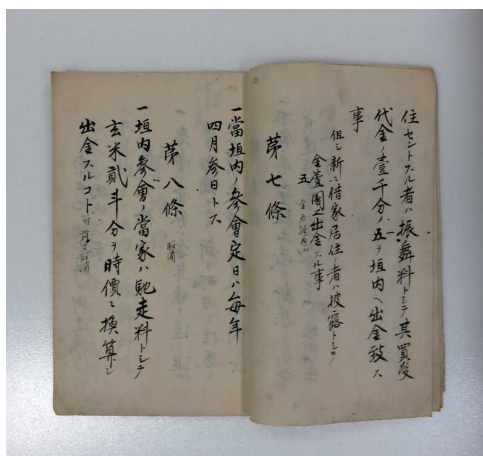 住セントスル者ハ振舞料トシテ其買受
代金ノ壹千分ノ五ヲ垣内ヘ出金致ス
事
但シ新ニ借家居住ノ者ハ披露トシテ
金壹圓出金スル事
五
第七條
一當垣内ノ參會定日ハ毎年
四月參日トス
第八條 取消
一垣内參會ノ當家ハ馳走料トシテ
玄米貳斗分ヲ時價ニ換算シ
出金スルコト
取消